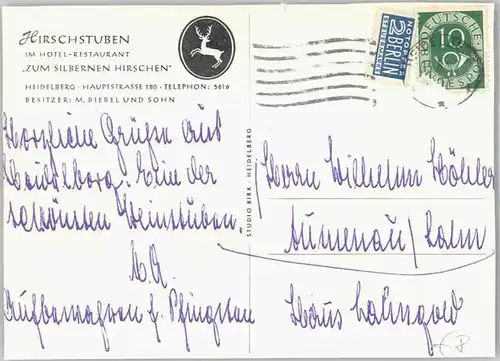 HIRSCHSTUBEN
IM HOTEL-RESTAURANT
„ZUM SILBERNEN HIRSCHEN"
HEIDELBERG · HAUPTSTRASSE 180 · TELEPHON: 5616
BESITZER: M. BIEBEL UND SOHN
NOTOPFER
2 BERLIN
STEUERMARKE
DEUTSCHE
10
BUNDESPOST
Herzliche Grüße aus
Heidelberg. Eine der
schönsten Weinstuben.
STUDIO BIRK · HEIDELBERG
Herrn Wilhelm Köhler
Aumenau/Lahn
Haus Lahngold